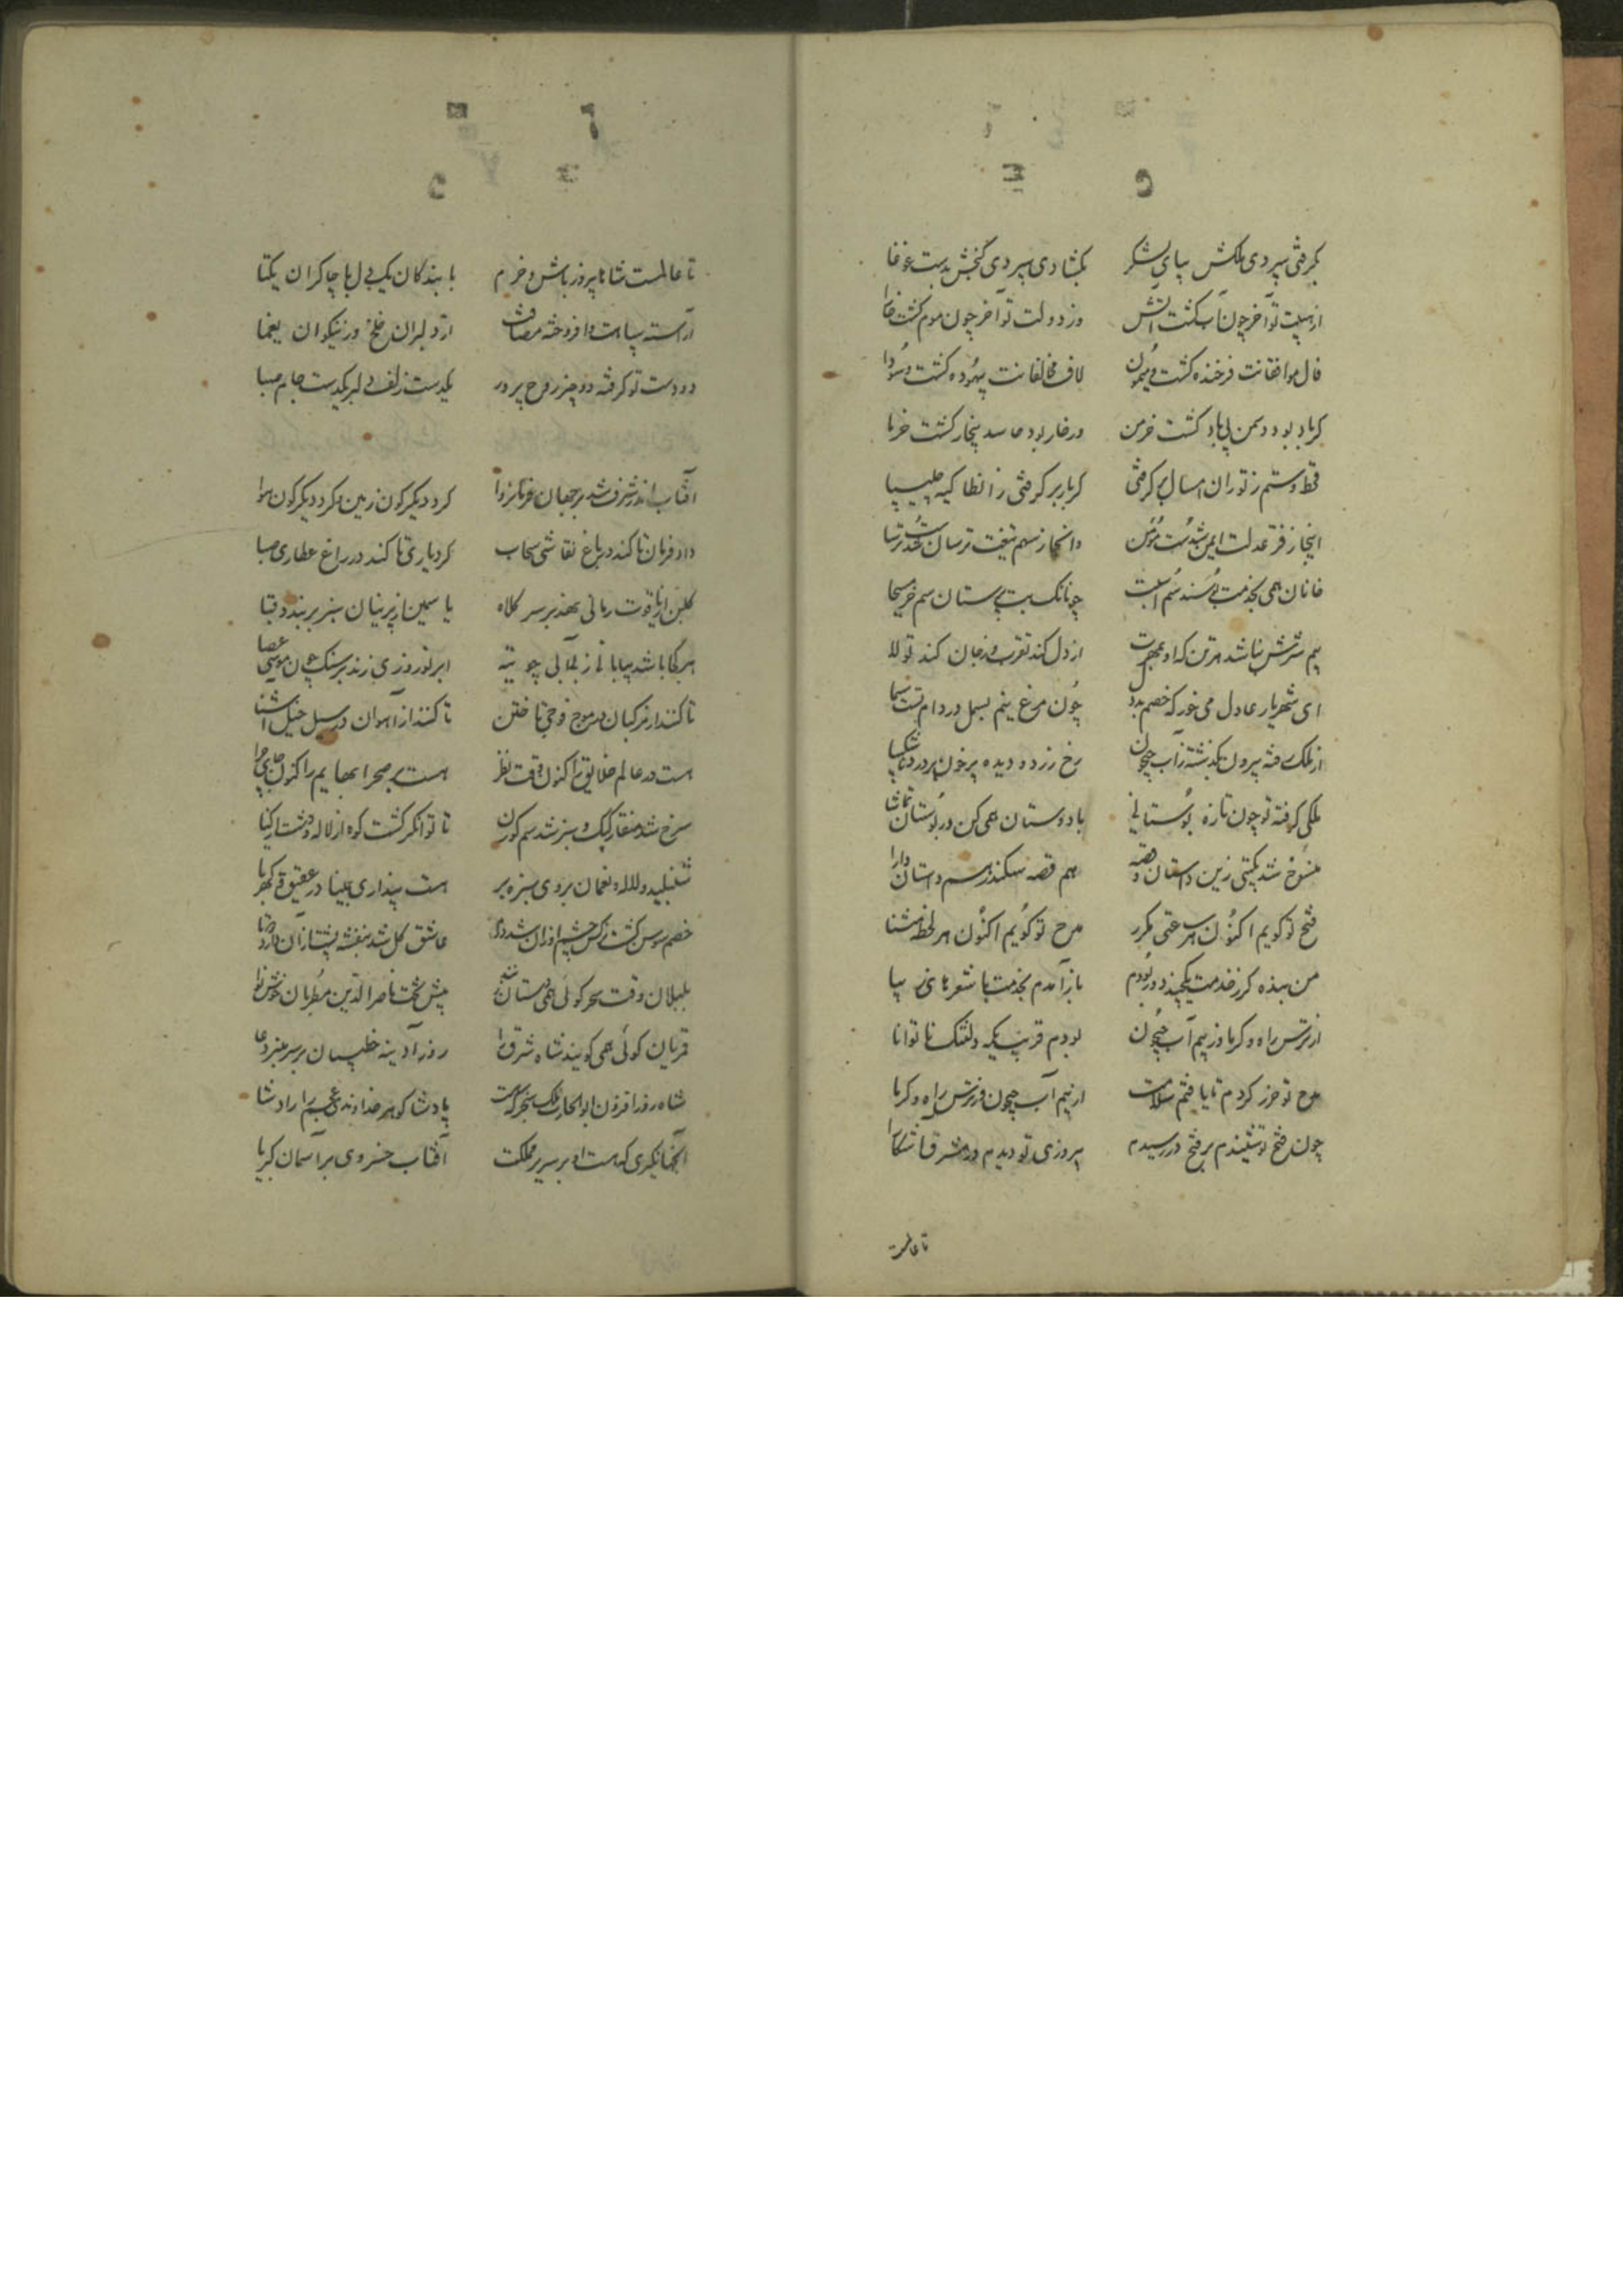 بگرفتی سپردی ملکش بپای لشکر بگشادی سپردی گنجش بدست غوغا
از هیبت تو آخر چون آب گشت آتش وز دولت تو آخر چون موم گشت خارا
فال موافقانت فرخنده گشت و میمون لاف مخالفانت بیهوده گشت و سودا
گر باد بود دشمن بی باد گشت خرمن ور خار بود حاسد بیخار گشت خرما
قحط و ستم ز توران امسال بر گرفتی گر پار بر گرفتی ز انطاکیه چلیپا
اینجا ز فر عدلت ایمن شدست مؤمن وانجا ز سهم تیغت ترسان شدست ترسا
خانان همی بخدمت بوسند سم اسبت چونانک بت پرستان سم خر مسیحا
بیم سرش نباشد هر تن که او بمهرت از دل کند تقرب وز جان کند تولا
ای شهریار عادل می خور که خصم بددل چون مرغ نیم بسمل در دام تست
از ملک رفته بیرون بگذشته ز آب جیحون رخ زرد و دیده پر خون پر درد و ناشکیبا
ملکی گرفته تو چون تازه بوستانی با دوستان همی کن در بوستان تماشا
منسوخ شد بگیتی زین داستان و قصه هم قصه سکندر هم داستان دارا
فتح تو گویم اکنون هر ساعتی مکرر مدح تو گویم اکنون هر لحظه مثنا
من بنده گر ز خدمت یکچند دور بودم باز آمدم بخدمت با شعرهای زیبا
از ترس راه و گرما وز بیم آب جیحون بودم قریب یکمه دلتنگ ناتوانا
مدح تو حرز کردم تا یافتم سلامت از بیم آب جیحون وز ترس راه و گرما
چون فتح تو شنیدم بر فتح در رسیدم پیروزی تو دیدم در مشرق آشکارا
تا عالمست
تا عالمست شاها پیروز باش و خرم با بندگان یکدل با چاکران یکتا
آراسته سپاهت و افروخته مصافت از دلبران خلخ وز نیکوان یغما
دو دست تو گرفته دو چیز روح پرور یکدست زلف دلبر یکدست جام صهبا
آفتاب اندر شرف شد بر جهان فرمانروا کرد دیگرگون زمین و کرد دیگرگون هوا
داد فرمان تا کند در باغ نقاشی سحاب کرد یاری تا کند در راغ عطاری صبا
گلبن از یاقوت رمانی نهد بر سر کلاه یاسمین از پرنیان سبز بر بندد قبا
هر کجا باشد بیابانی ز بی آبی چو تیه ابر نوروزی زند بر سنگ چون موسی عصا
تا کنند از مرکبان در موج فوجی تاختن تا کنند از آهوان در سیل خیلی آشنا
هست در عالم خلایق را کنون وقت نظر هست بر صحرا بهایم را کنون جای چرا
سرخ شد منقار کبک و سبز شد سم گوزن تا توانگر گشت کوه از لاله و دشت از گیا
شنبلید و لاله نعمان بروی سبزه بر هست پنداری بمینا در عقیق و کهربا
خصم سوسن گشت نرگس چشم او زان شد دژم عاشق گل شد بنفشه پشت از آن دارد دوتا
بلبلان وقت سحر گوئی همی دستان زنند پیش تخت ناصر الدین مطربان خوش نوا
قمریان گوئی همی گویند شاه شرق را روز آدینه خطیبان بر سر منبر دعا
شاه روز افزون ابوالحارث ملک سنجر که هست پادشا گوهر خداوندی عجم را پادشا
آن جهانگیری که هست او بر سریر مملکت آفتاب خسروی بر آسمان کبریا